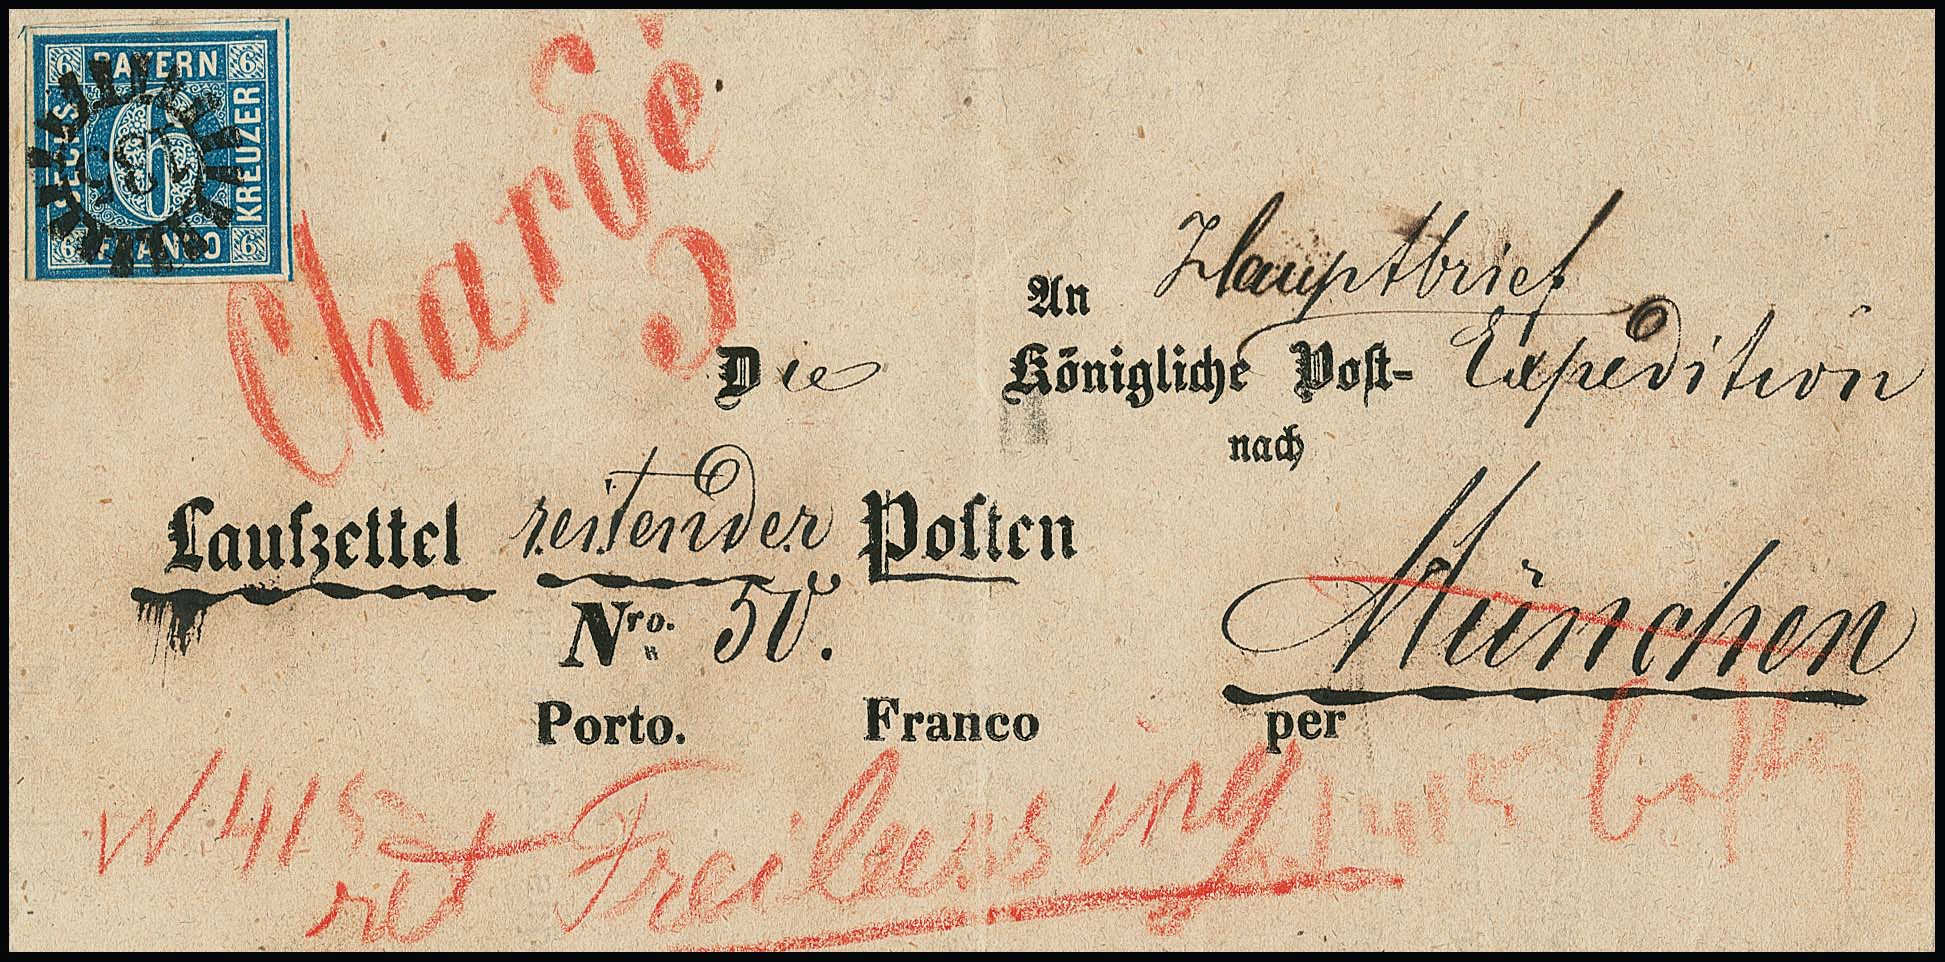 6 BAYERN 6
SECHS 6 KREUZER
6 FRANCO 6
Chargé
An Hauptbrief
Die Königliche Post- Expedition
nach
Laufzettel reitender Posten
München
Nro. 50.
Porto. Franco per
W 415
ret Freilassing